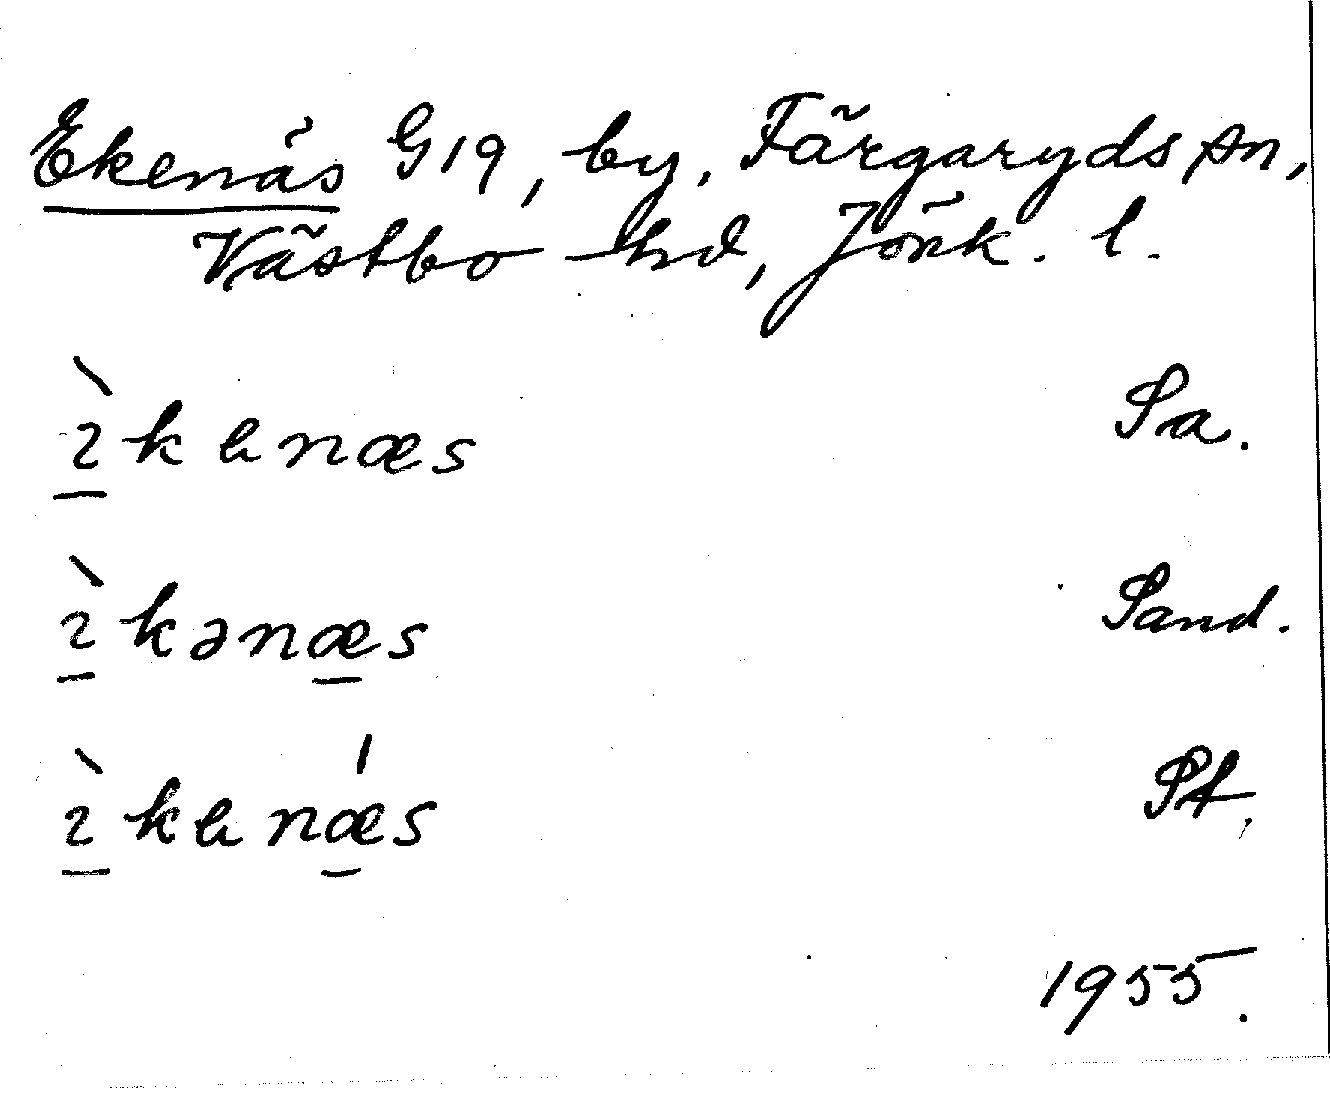 Ekenäs G19, by, Färgaryds sn,
Västbo hd, Jönk. l.
ì̲kenæs Sa.
ì̲kənæ̲s Sand.
ì̲kenǽ̲s Pt.
1955.